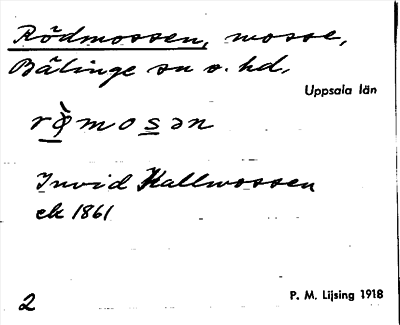 Rödmossen, mosse,
Bälinge sn o. hd,
Uppsala län
rø̀mosən
Invid Kallmossen
ek 1861
2
P. M. Lijsing 1918